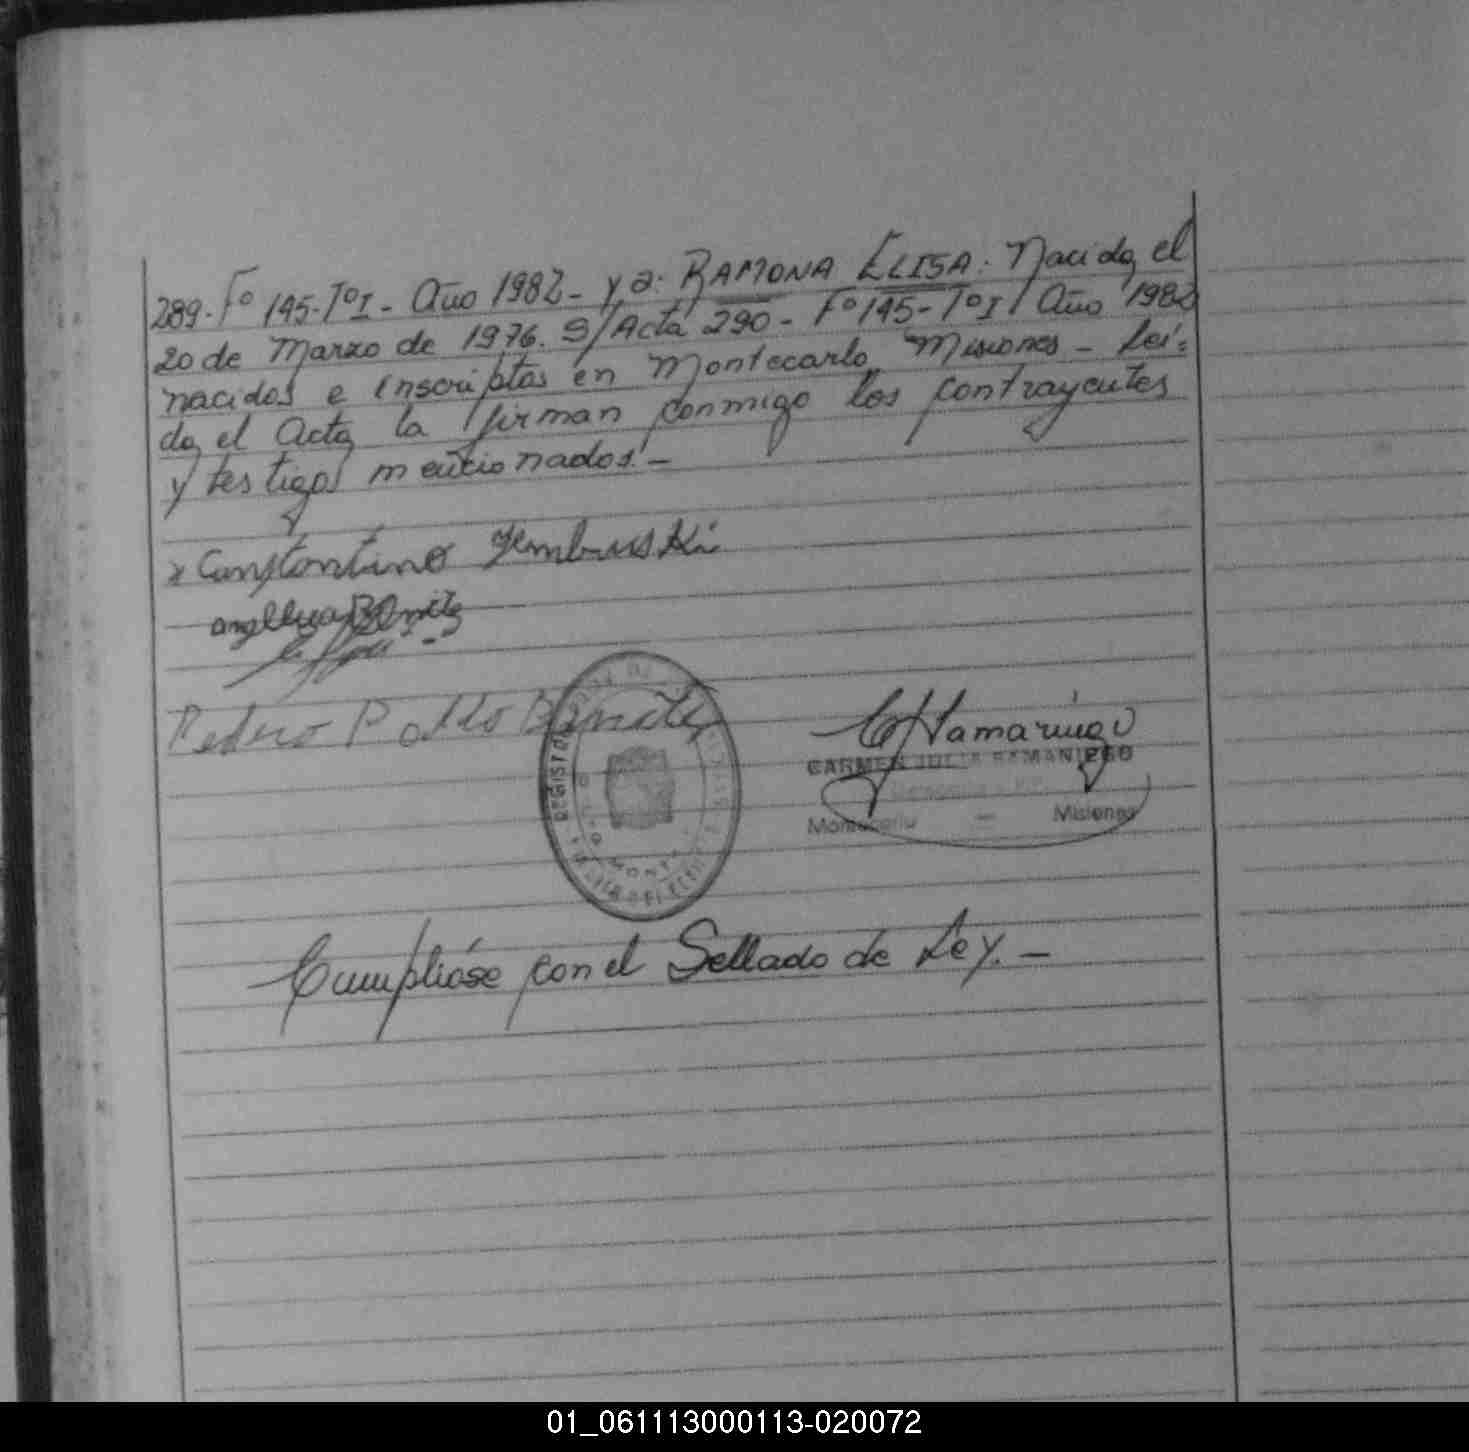 289. Fº 145-TºI- Año 1982- y a: RAMONA ELISA: Nacida el
20 de Marzo de 1976. S/Acta 290- Fº145-TºI Año 1982
nacidos e inscriptos en Montecarlo, Misiones - Leí=
da el Acta la firman conmigo los contrayentes
y testigos mencionados.-
x Constantino Yembruski
Benitez
Pedro P Benitez
CARMEN JULIA SAMANIEGO
Montecarlo — Misiones
REGISTRO
Cumplióse con el Sellado de Ley.-
01_061113000113-020072